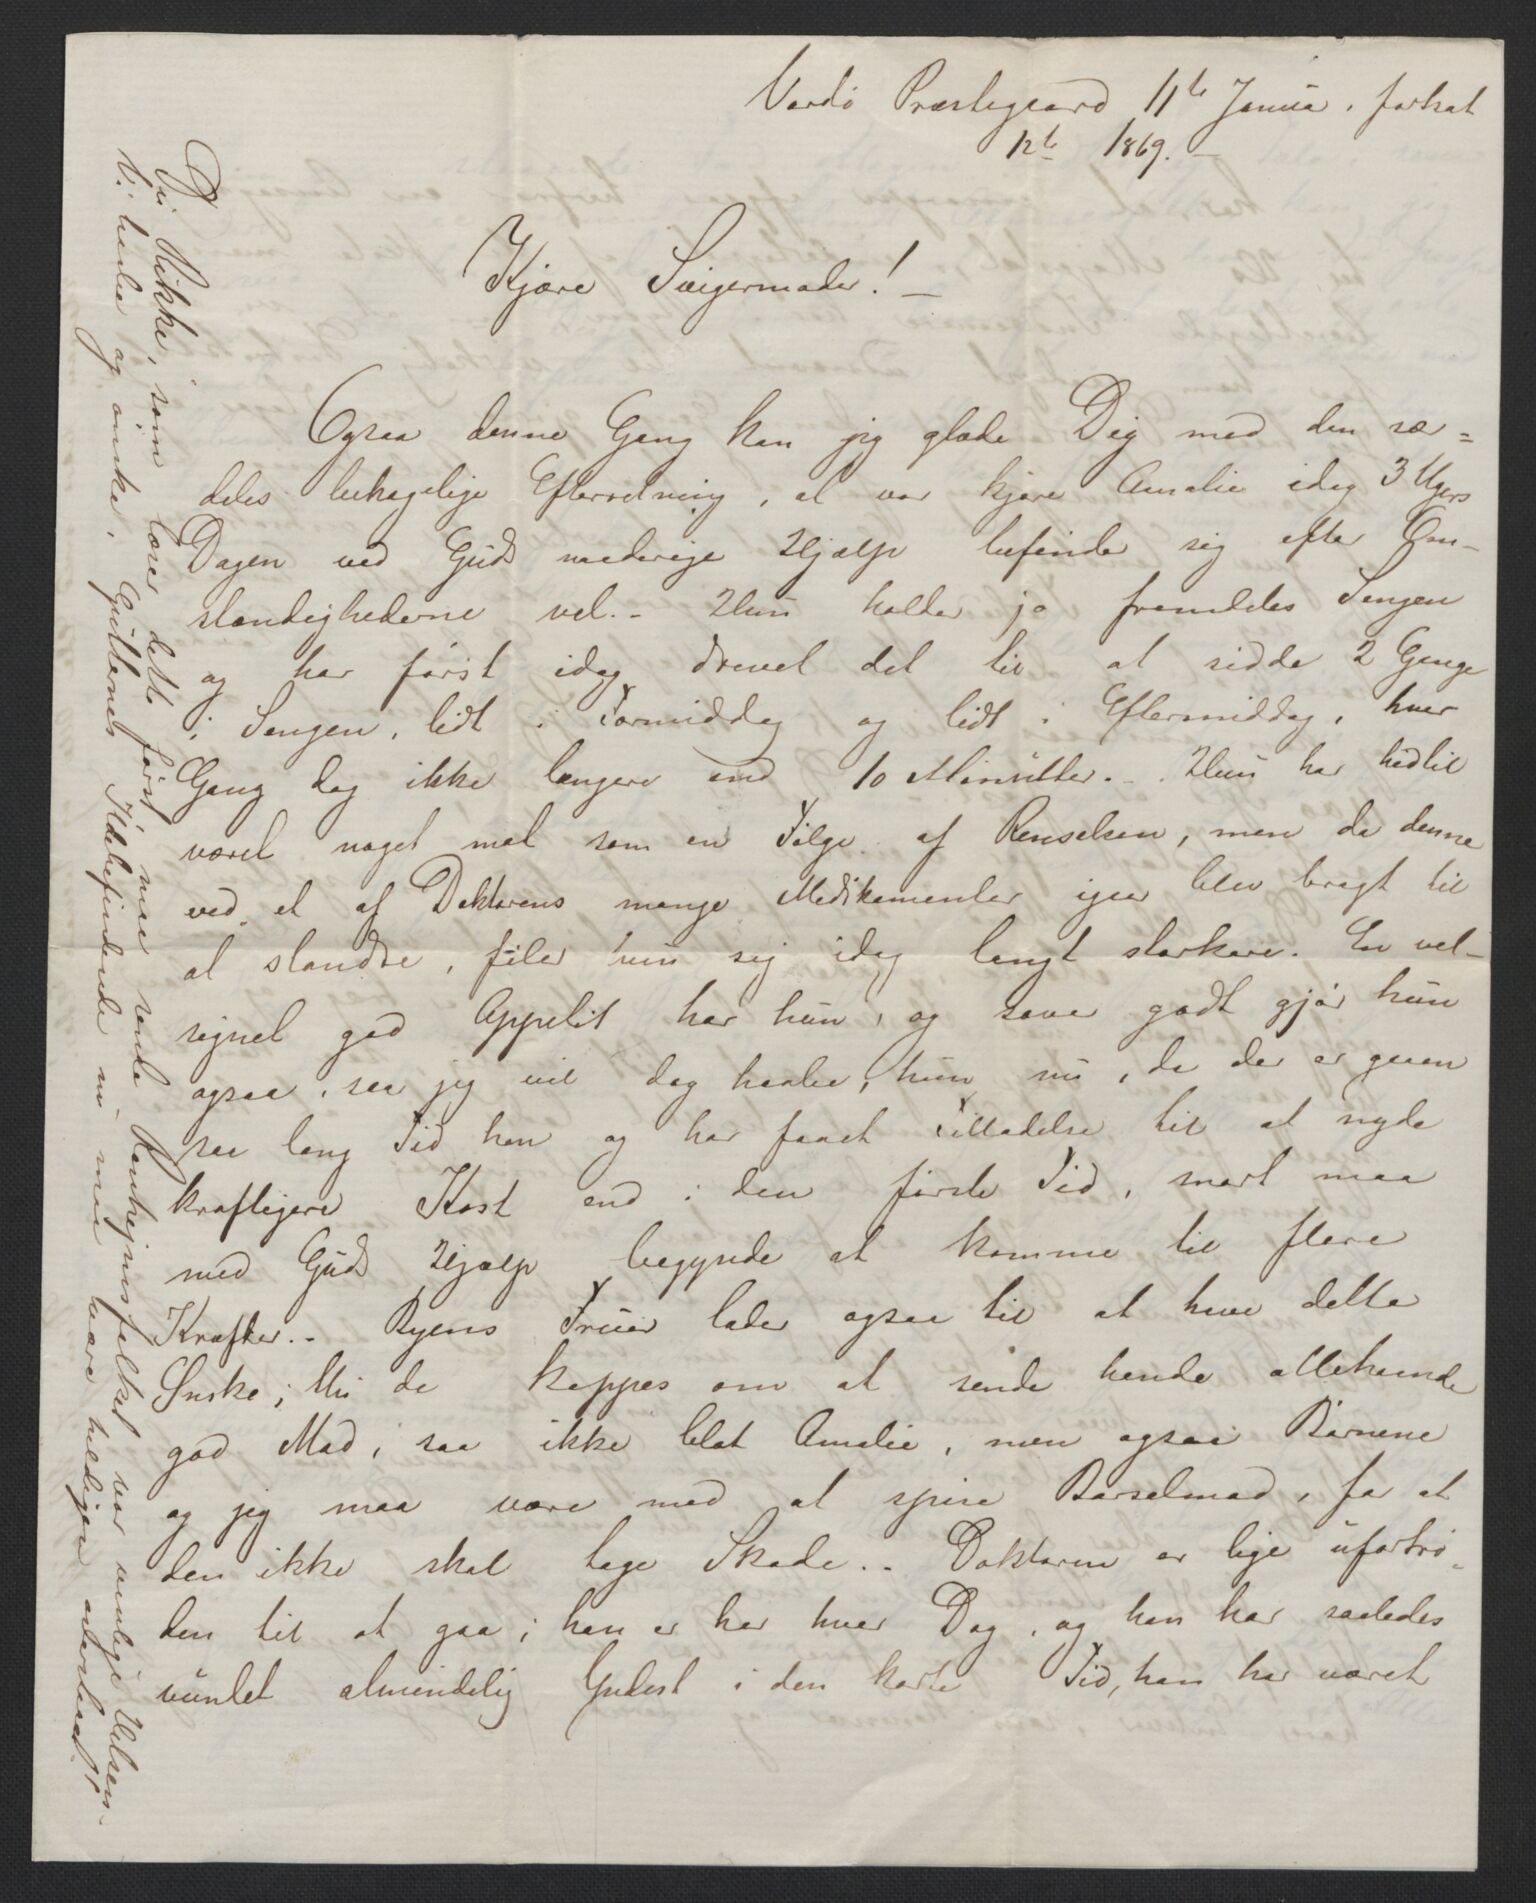 Vardö Præstegaard 11te Januar, fortsat
12te 1869. –
Kjære Svigermoder! –
Ogsaa denne Gang kan jeg glæde Dig med den sær=
deles behagelige Efterretning, at vor kjære Amalie idag 3 Ugers
Dagen ved Guds naaderige Hjælp befinder sig efter Om-
stændighederne vel. – Hun holder jo fremdeles Sengen
og har først idag drevet det til at sidde 2 Gange
i Sengen, lidt i Formiddag og lidt i Eftermiddag, hver
Gang dog ikke længere end 10 Minutter. – Hun har hidtil
været noget mat som en Følge af Renselsen, men da denne
ved et af Doktorens mange Medikamenter igaar blev bragt til
at standse, føler hun sig idag langt stærkere. En vel-
signet god Appetit har hun, og sover godt gjør hun
ogsaa, saa jeg vil dog haabe, hun nu, da der er gaaen
saa lang Tid hen og har faaet Tilladelse til at nyde
kraftigere Kost end i den første Tid, snart maa
med Guds Hjælp begynde at komme til flere
Kræfter. – Byens Fruer lader ogsaa til at have dette
Ønske; thi de kappes om at sende hende allehaande
god Mad, saa ikke blot Amalie, men ogsaa Børnene
og jeg maa være med at spise Barselmad, for at
den ikke skal tage Skade. – Doktoren er lige ufortrø-
den til at gaa; han er her hver Dag, og han har saaledes
vundet almindelig Yndest i den korte Tid, han har været
Du Rikke, som læser dette først maa sende Rankejnsfolket vor venlige Hilsen
til hende og ønske, Gutternes Ildebefindende nu maa være heldigen overstaaet!